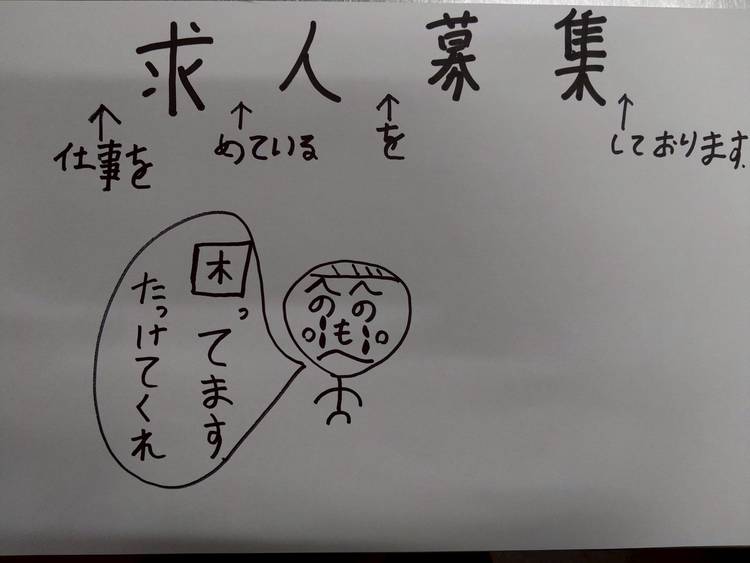 求人募集
↑ ↑ ↑ ↑
仕事を めている を しております.
困ってます
たっけてくれ
へへ
のの
も
へ